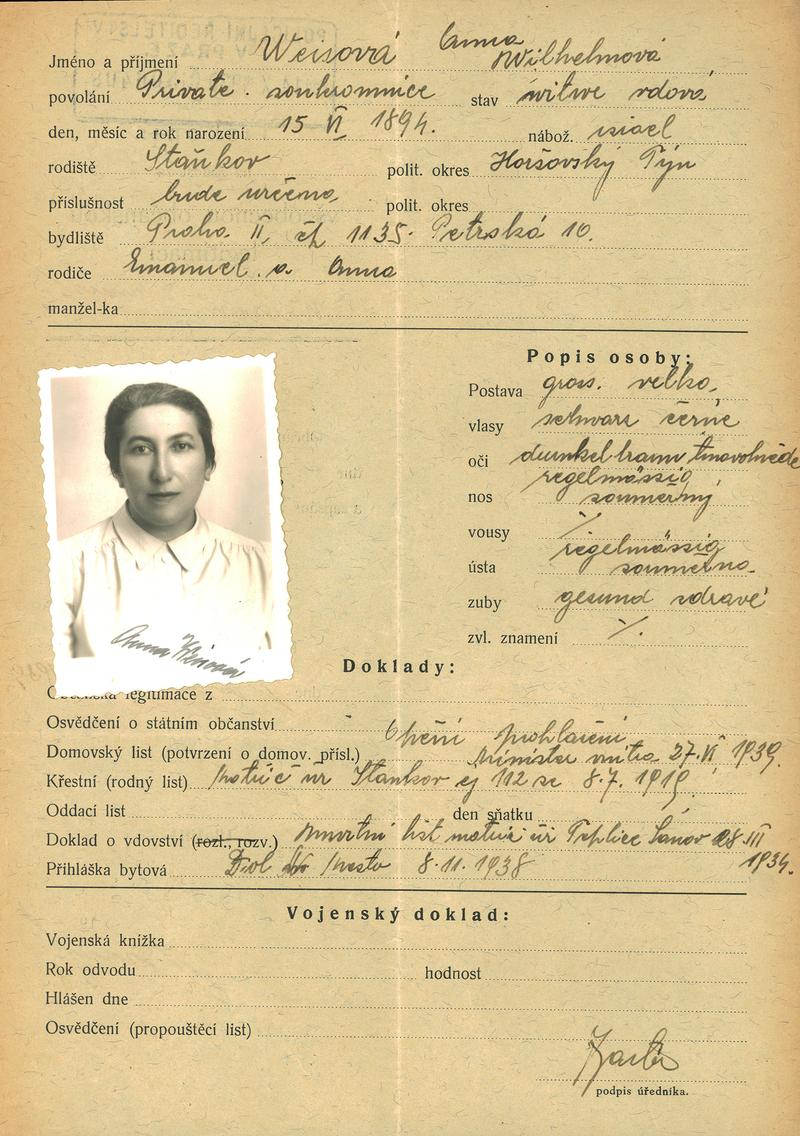 Jméno a příjmení Weisová Anna Wilhelmová
povolání Private. soukromnice stav witwe vdova
den, měsíc a rok narození 15 VI 1894. nábož. israel
rodiště Staňkov polit. okres Horšovský Týn
příslušnost bude určena polit. okres
bydliště Praha II, čp 1135. Petrská 10.
rodiče Emanuel a Anna
manžel-ka
Popis osoby:
Postava gross. velká
vlasy schwarz černé
oči dunkelbraun tmavohnědé
nos regelmässig souměrný
vousy ./.
ústa regelmässig souměrná
zuby gesund zdravé
zvl. znamení ./.
Anna Weisová
Doklady:
legitimace z
Osvědčení o státním občanství
Domovský list (potvrzení o domov. přísl.) prohlášení vnitra 27. VI 1939.
Křestní (rodný list) Staňkov 112 8.7. 1919
Oddací list den sňatku
Doklad o vdovství (rozl., rozv.) úmrtní list Teplice Šanov 28 III 1934.
Přihláška bytová 8.11.1938
Vojenský doklad:
Vojenská knížka
Rok odvodu hodnost
Hlášen dne
Osvědčení (propouštěcí list)
podpis úředníka.